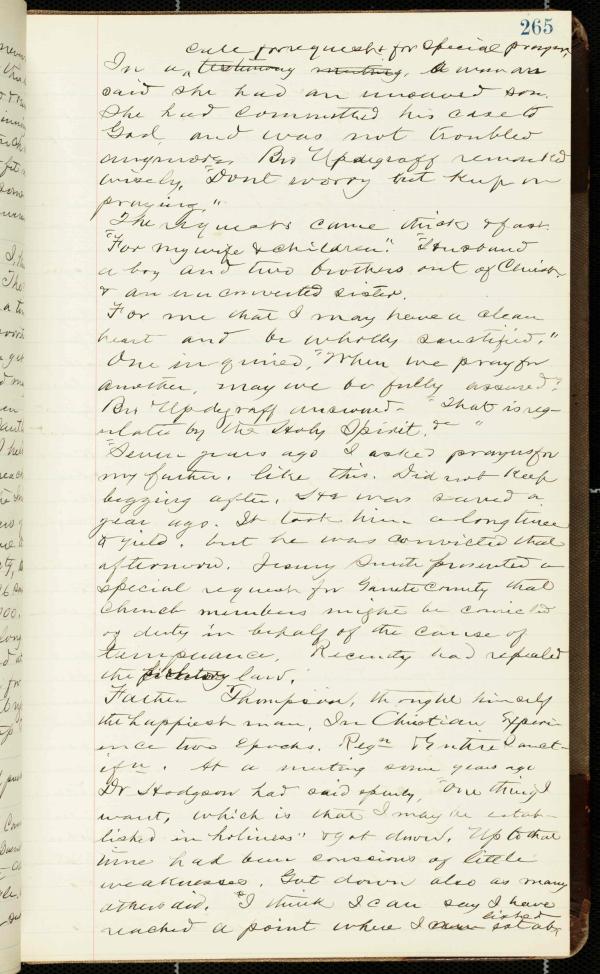 265
call for requests for special prayer,
In a testimony meeting, a woman
said she had an unsaved son.
She had committed his case to
God and was not troubled
anymore. Bro Updegraff remarked
wisely, "Dont worry but keep on
praying."
The requests came thick & fast.
"For my wife & children." "Husband
a boy and two brothers out of Christ.
& an unconverted sister.
For me that I may have a clean
heart and be wholly sanctified."
One inquired, "When we pray for
another, may we be fully assured?
Bro Updegraff answered - "That is reg-
ulated by the Holy Spirit."
"Seven years ago I asked prayers for
my father, like this. Did not keep
begging after. He was saved a
year ago. It took him a long time
to yield, but he was convicted that
afternoon. Jenny Smith presented a
special request for County that
Church members might be convicted
of duty in behalf of the cause of
temperance. Recently had repealed
the law.
Father Thompson, thought himself
the happiest man. In Christian Experi-
ence two Epochs. Regn & Entire Sanct-
ifn. At a meeting some years ago
Dr Hodgson had said openly, "One thing I
want, which is that I may be estab-
lished in holiness" & got down. Up to that
time had been conscious of little
weaknesses. Got down also as many
others did. "I think I can say I have
reached a point where I am estab-
lished